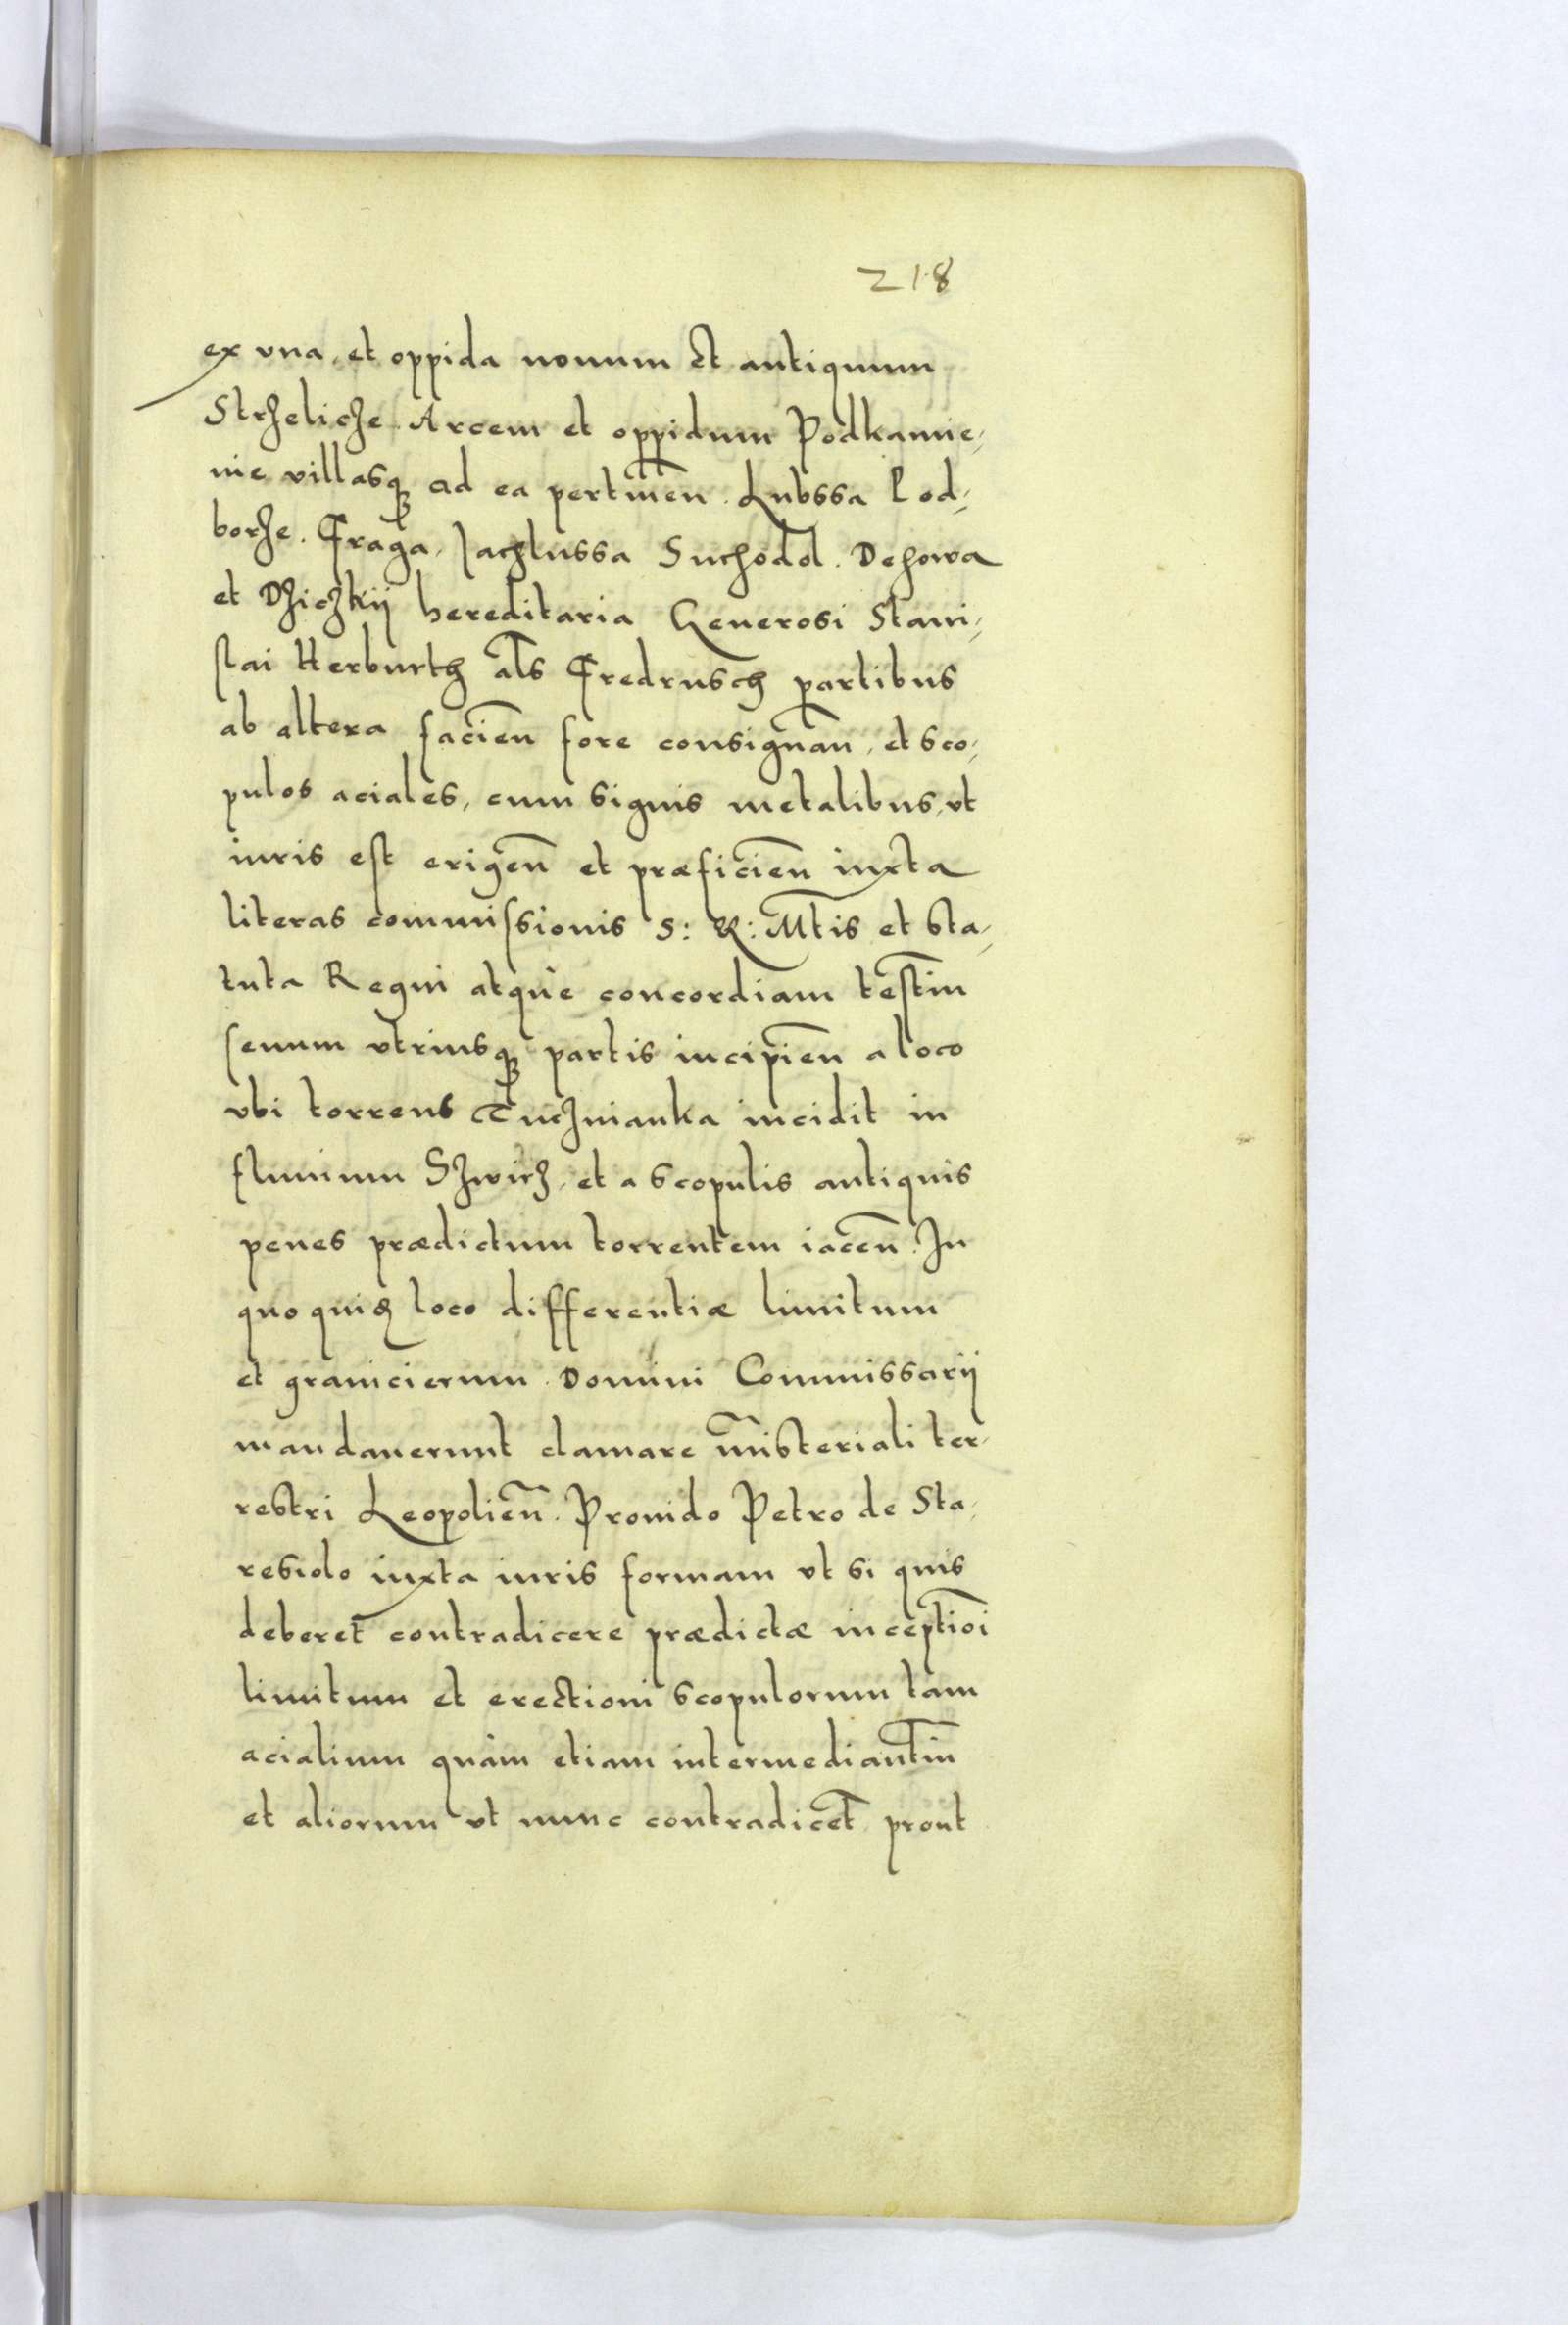 218
ex vna, et oppida nouum et antiquum
Strzelicze Arcem et oppidum Podkamie,
nie villasq₃ ad ea pertineñ. Lubssa Pod,
borze. Fraga, Jachlussa Suchodol. Dehowa
et Dziczkij hereditaria Generosi Stani,
slai Herburth als Fredrusch partibus
ab altera facień fore consignań, et sco,
pulos aciales, cum signis metalibus, vt
iuris est erigeñ et præficień iuxta
literas commissionis S: R: Mtis et sta,
tuta Regni atque concordiam testim
senum vtriusq₃ partis incipień a loco
vbi torrens Tucznianka incidit in
fluuium Szwirz, et a scopulis antiquis
penes prædictum torrentem iaceñ. In
quo quid₃ loco differentiæ limitum
et granicierum Domini Commissarij
mandauerunt clamare misteriali ter,
restri Leopolień. Prouido Petro de Sta,
resiolo iuxta iuris formam vt si quis
deberet contradicere prædictæ inceptioi
limitum et erectioni scopulorum tam
acialium quàm etiam intermediantim
et aliorum vt nunc contradicet prout